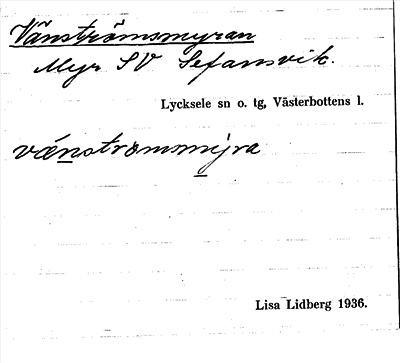 Vänströmsmyran
Myr SV Sefansvik.
Lycksele sn o. tg, Västerbottens l.
vænstrømsmýra
Lisa Lidberg 1936.